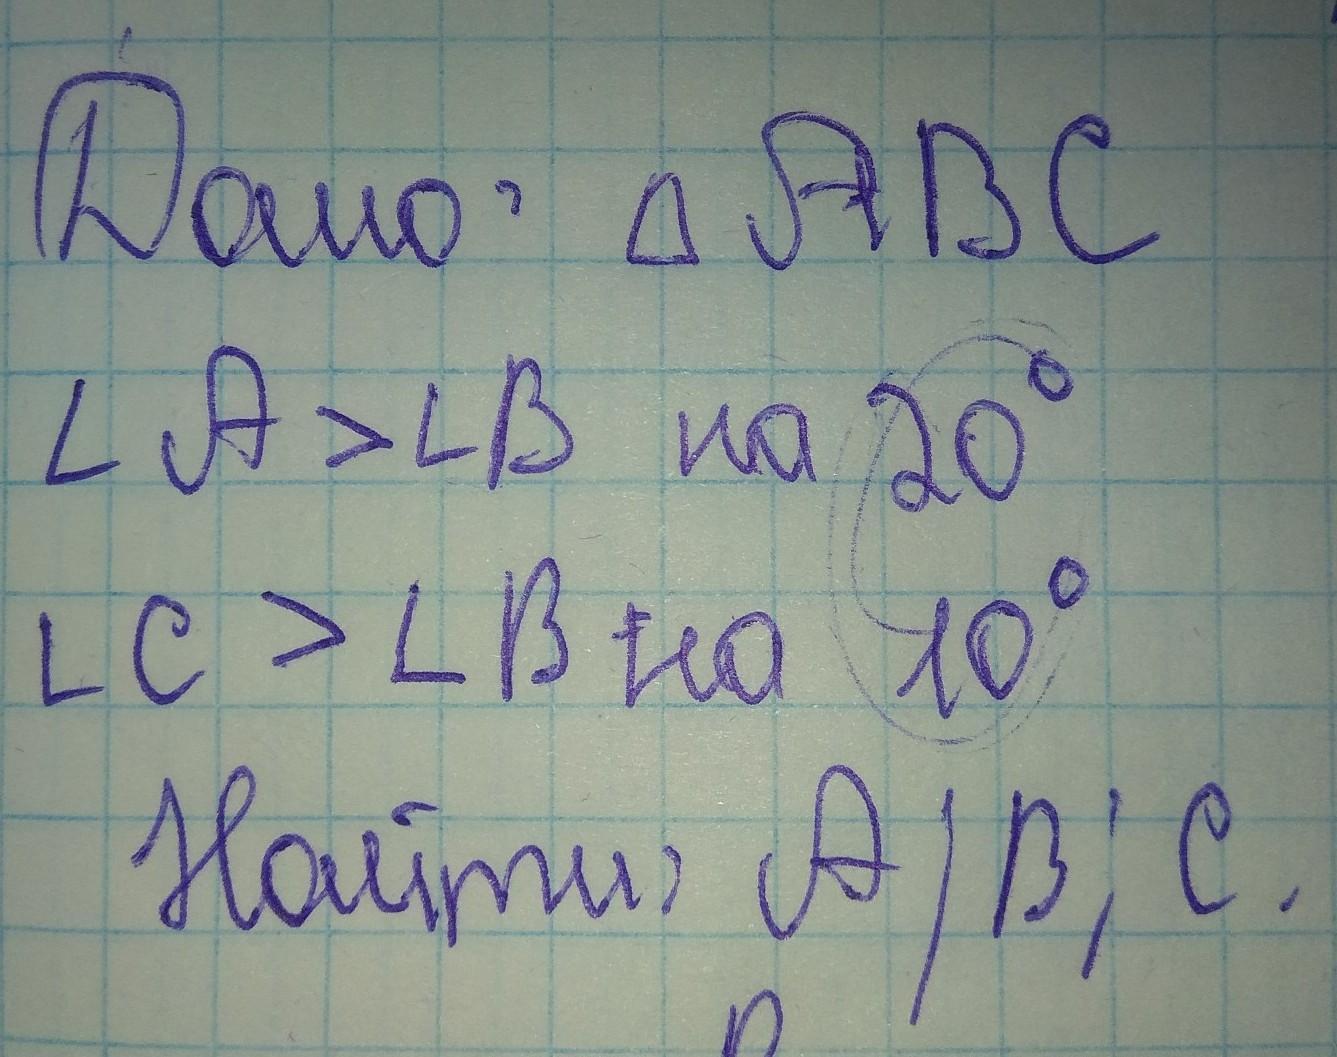 Дано: △ABC
∠A>∠B на 20°
∠C > ∠B на 10°
Найти: A; B; C.